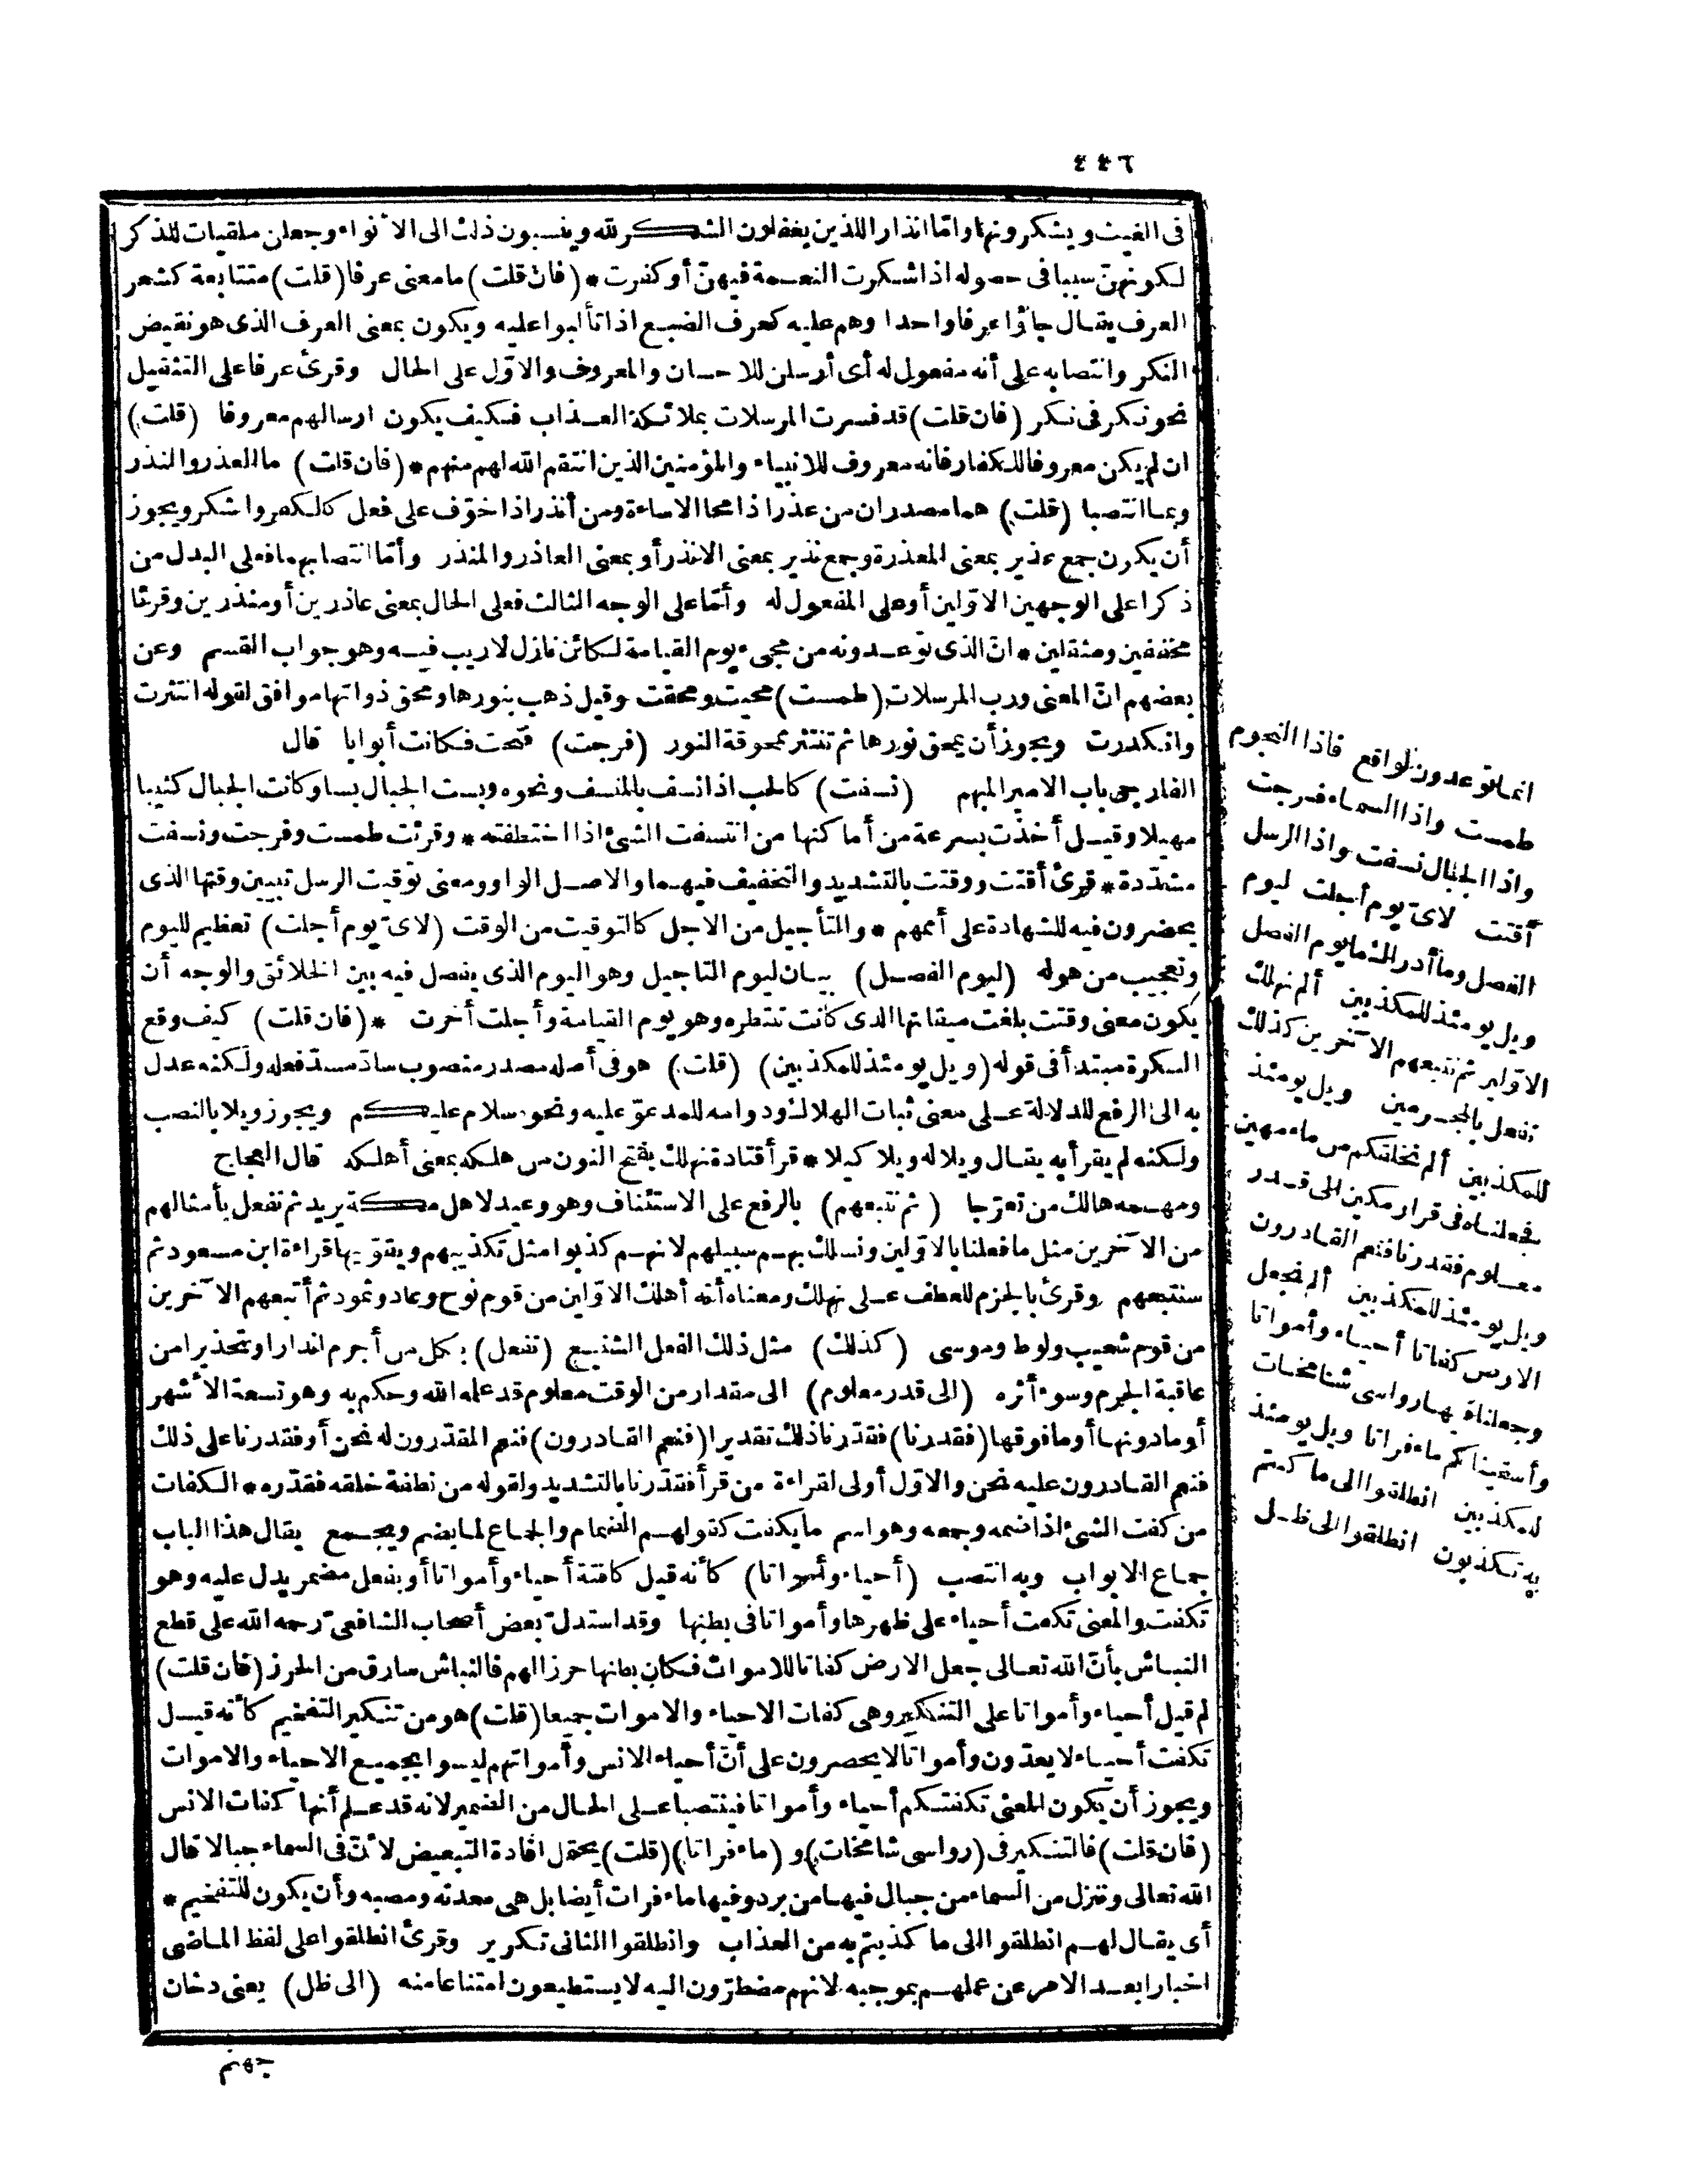 ٤٤٦
فى الغيث ويشكرونها وامّا انذار اللذين يغفلون الشكر لله وينسبون ذلك الى الأنواء وجعلن ملقيات للذكر
لكونهنّ سببا فى حصوله اذا شكرت النعمة فيهنّ أو كفرت * (فان قلت) ما معنى عرفا (قلت) متتابعة كشعر
العرف يقال جاؤا عرفا واحدا وهم عليه كعرف الضبع اذا تألبوا عليه ويكون بمعنى العرف الذى هو نقيض
النكر وانتصابه على أنه مفعول له أى أرسلن للاحسان والمعروف والاوّل على الحال وقرئ عرفا على التثقيل
نحو نكر فى نكر (فان قلت) قد فسرت المرسلات بملائكة العذاب فكيف يكون ارسالهم معروفا (قلت)
ان لم يكن معروفا للكفار فانه معروف للانبياء والمؤمنين الذين انتقم الله لهم منهم * (فان قلت) ما العذر والنذر
وبما انتصبا (قلت) هما مصدران من عذر اذا محا الاساءة ومن أنذر اذا خوّف على فعل كالكفر والشكر ويجوز
أن يكون جمع عذير بمعنى المعذرة وجمع نذير بمعنى الانذر أو بمعنى العاذر والمنذر وأمّا انتصابهما فعلى البدل من
ذكرا على الوجهين الاوّلين أو على المفعول له وأمّا على الوجه الثالث فعلى الحال بمعنى عاذرين أو منذرين وقرئا
مخففين ومثقلين * انّ الذى توعدونه من مجىء يوم القيامة لكائن نازل لا ريب فيه وهو جواب القسم وعن
بعضهم انّ المعنى ورب المرسلات (طمست) محيت ومحقت وقيل ذهب بنورها ومحق ذواتها موافق لقوله انتثرت
وانكدرت ويجوز أن يمحق نورها ثم تنتثر ممحوقة النور (فرجت) فتحت فكانت أبوابا قال
الفارجى باب الامير المبهم (نسفت) كالحب اذا نسف بالمنسف ونحوه وبست الجبال بسا وكانت الجبال كثيبا
مهيلا وقيل أخذت بسرعة من أماكنها من انتسفت الشئ اذا اختطفته * وقرئت طمست وفرجت ونسفت
مشدّدة * قرئ أقتت ووقتت بالتشديد والتخفيف فيهما والاصل الواو ومعنى توقيت الرسل تبيين وقتها الذى
يحضرون فيه للشهادة على أممهم * والتأجيل من الاجل كالتوقيت من الوقت (لاىّ يوم أجلت) تعظيم لليوم
وتعجيب من هوله (ليوم الفصل) بيان ليوم التاجيل وهو اليوم الذى يفصل فيه بين الخلائق والوجه أن
يكون معنى وقتت بلغت ميقاتها الذى كانت تنتظره وهو يوم القيامة وأجلت أخرت * (فان قلت) كيف وقع
النكرة مبتدأ فى قوله (ويل يومئذ للمكذبين) (قلت) هو فى أصله مصدر منصوب سادّ مسدّ فعله ولكنه عدل
به الى الرفع للدلالة على معنى ثبات الهلاك ودوامه للمدعوّ عليه ونحوه سلام عليكم ويجوز ويلا بالنصب
ولكنه لم يقرأ به يقال ويلا له ويلا كيلا * قرأ قتادة نهلك بفتح النون من هلكه بمعنى أهلكه قال العجاج
ومهمه هالك من تعرّجا (ثم نتبعهم) بالرفع على الاستئناف وهو وعيد لاهل مكة يريد ثم نفعل بأمثالهم
من الآخرين مثل ما فعلنا بالاوّلين ونسلك بهم سبيلهم لانهم كذبوا مثل تكذيبهم ويقوّيها قراءة ابن مسعود ثم
سنتبعهم وقرئ بالجزم للعطف على نهلك ومعناه أنه أهلك الاوّلين من قوم نوح وعاد وثمود ثم أتبعهم الآخرين
من قوم شعيب ولوط وموسى (كذلك) مثل ذلك الفعل الشنيع (نفعل) بكل من أجرم انذارا وتحذيرا من
عاقبة الجرم وسوء أثره (الى قدر معلوم) الى مقدار من الوقت معلوم قد علمه الله وحكم به وهو تسعة الأشهر
أو مادونها أو مافوقها (فقدرنا) فقدّرنا ذلك تقديرا (فنعم القادرون) فنعم المقدّرون له نحن أو فقدرنا على ذلك
فنعم القادرون عليه نحن والاوّل أولى لقراءة من قرأ فقدّرنا بالتشديد ولقوله من نطفة خلقه فقدّره * الكفات
من كفت الشئ اذا ضمه وجمعه وهو اسم ما يكفت كقولهم الضمام والجماع لما يضم ويجمع يقال هذا الباب
جماع الابواب وبه انتصب (أحياء وأمواتا) كأنه قيل كافتة أحياء وأمواتا أو بفعل مضمر يدل عليه وهو
تكفت والمعنى تكفت أحياء على ظهرها وأمواتا فى بطنها وقد استدلّ بعض أصحاب الشافعىّ رحمه الله على قطع
النباش بأنّ الله تعالى جعل الارض كفاتا للاموات فكان بطنها حرزا لهم فالنباش سارق من الحرز (فان قلت)
لم قيل أحياء وأمواتا على التنكير وهى كفات الاحياء والاموات جميعا (قلت) هو من تنكير التفخيم كأنه قيل
تكفت أحياء لا يعدّون وأمواتا لا يحصرون على أنّ أحياء الانس وأمواتهم ليسوا بجميع الاحياء والاموات
ويجوز أن يكون المعنى تكفتكم أحياء وأمواتا فينتصبا على الحال من الضمير لانه قد علم أنها كفات الانس
(فان قلت) فالتنكير فى (رواسى شامخات) و (ماء فراتا) (قلت) يحتمل افادة التبعيض لأنّ فى السماء جبالا قال
الله تعالى وننزل من السماء من جبال فيها من برد وفيها ماء فرات أيضا بل هى معدنه ومصبه وأن يكون للتفخيم *
أى يقال لهم انطلقوا الى ما كذبتم به من العذاب وانطلقوا الثانى تكرير وقرئ انطلقوا على لفظ الماضى
اخبارا بعد الامر عن عملهم بموجبه لانهم مضطرّون اليه لا يستطيعون امتناعا منه (الى ظل) يعنى دخان
جهنم
انما توعدون لواقع فاذا النجوم
طمست واذا السماء فرجت
واذا الجبال نسفت واذا الرسل
أقتت لاىّ يوم أجلت ليوم
الفصل وما أدراك ما يوم الفصل
ويل يومئذ للمكذبين ألم نهلك
الاوّلين ثم نتبعهم الآخرين كذلك
نفعل بالمجرمين ويل يومئذ
للمكذبين ألم نخلقكم من ماء مهين
فجعلناه فى قرار مكين الى قدر
معلوم فقدرنا فنعم القادرون
ويل يومئذ للمكذبين ألم نجعل
الارض كفاتا أحياء وأمواتا
وجعلنا فيها رواسى شامخات
وأسقيناكم ماء فراتا ويل يومئذ
للمكذبين انطلقوا الى ما كنتم
به تكذبون انطلقوا الى ظل